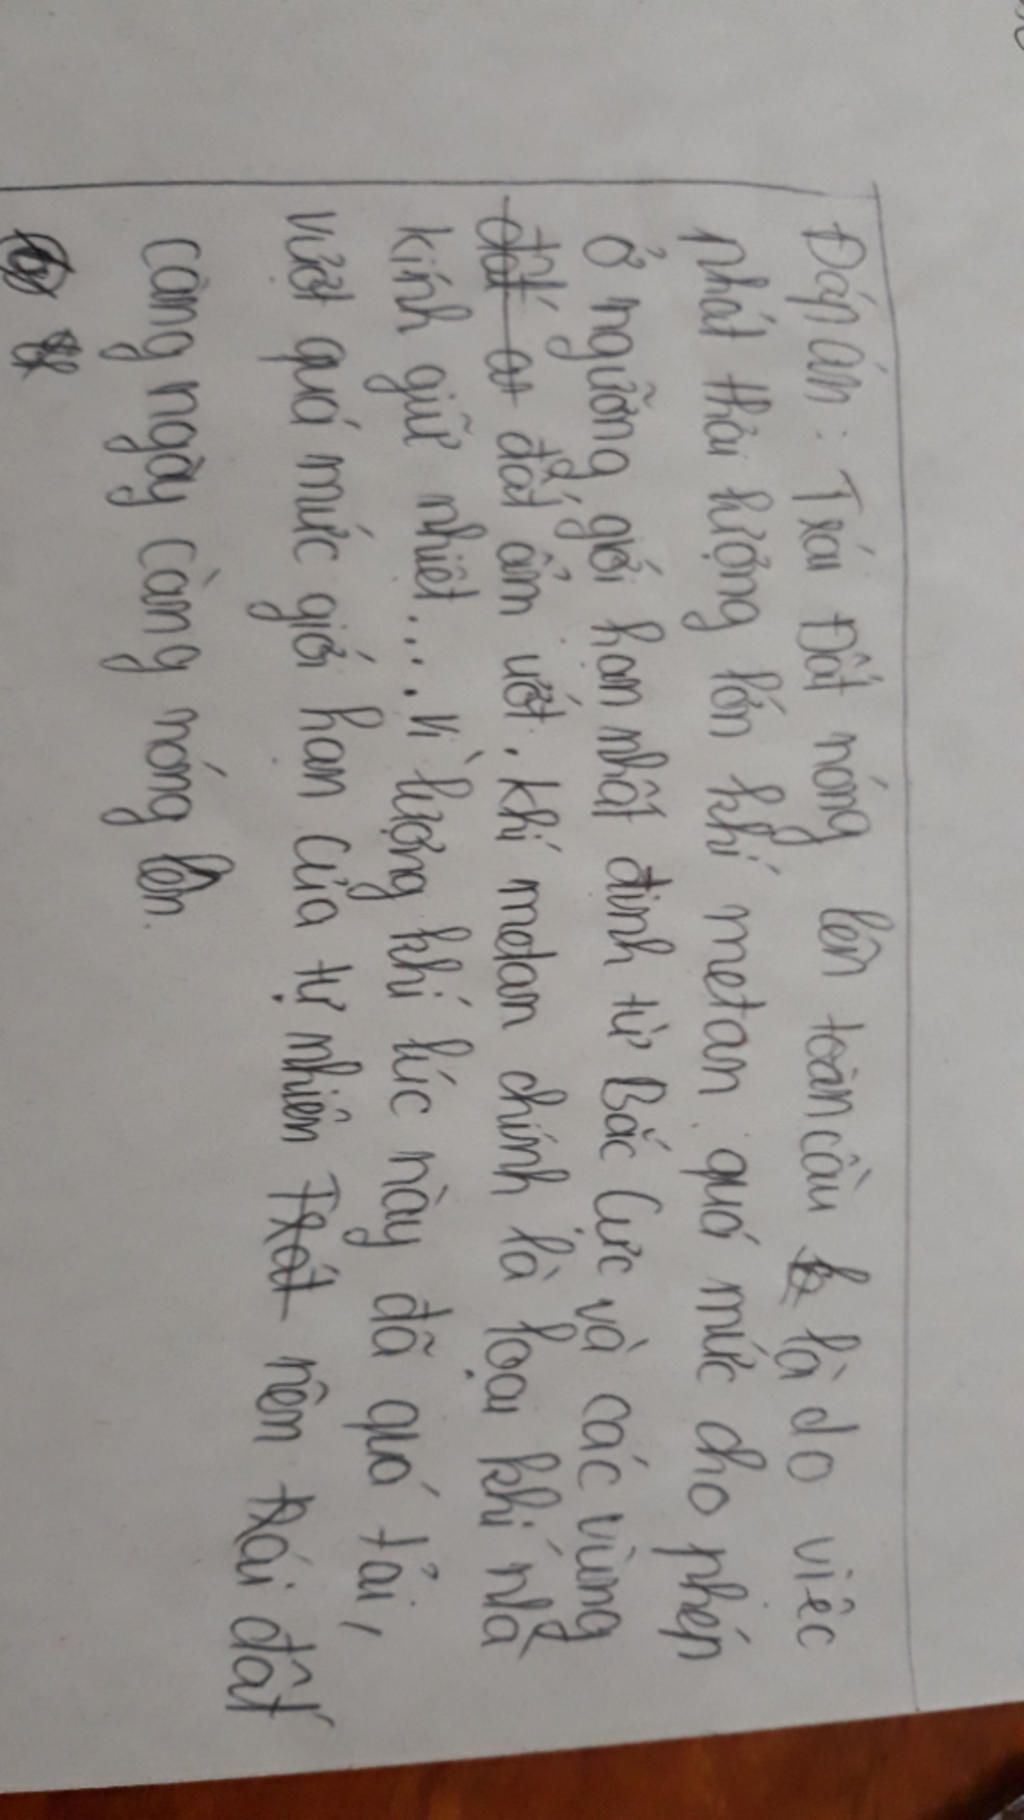 Đáp án: Trái Đất nóng lên toàn cầu là do việc
phát thải lượng lớn khí metan quá mức cho phép
ở ngưỡng giới hạn nhất định từ Bắc Cực và các vùng
đất ẩm ướt, khí metan chính là loại khí nhà
kính giữ nhiệt... vì lượng khí lúc này đã quá tải,
vượt quá mức giới hạn của tự nhiên nên trái đất
càng ngày càng nóng lên.